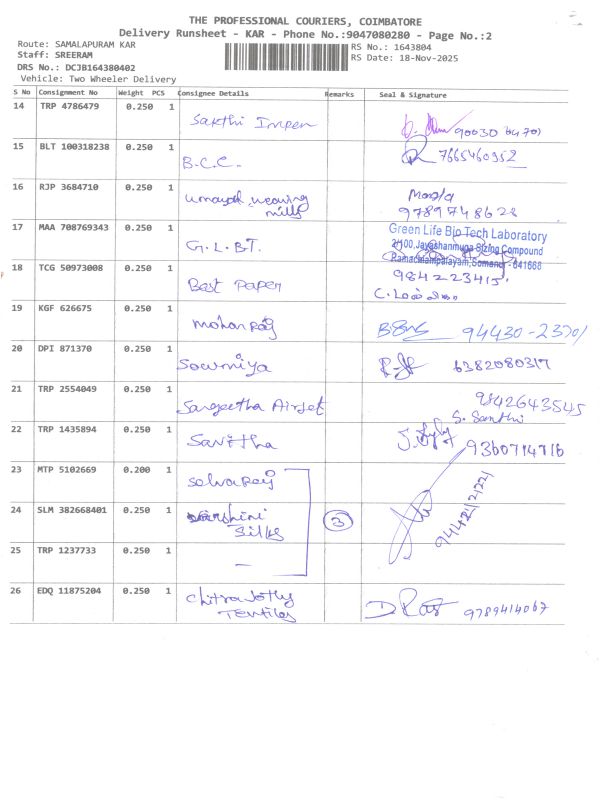 THE PROFESSIONAL COURIERS, COIMBATORE
Delivery Runsheet - KAR - Phone No.:9047080280 - Page No.:2
Route: SAMALAPURAM KAR
RS No.: 1643804
Staff: SREERAM
RS Date: 18-Nov-2025
DRS No.: DCJB164380402
Vehicle: Two Wheeler Delivery
S No Consignment No Weight PCS Consignee Details Remarks Seal & Signature
14 TRP 4786479 0.250 1 Sakthi Impex
15 BLT 100318238 0.250 1 B.C.C. 7665460352
16 RJP 3684710 0.250 1 Umayah weaving mills
9789748628
17 MAA 708769343 0.250 1 G.L.BT.
Green Life Bio Tech Laboratory
2/100, Jayashanmuga Sizing Compound
Ramachampalayam, Somanur - 641668
18 TCG 50973008 0.250 1 Best Paper
9842234151
19 KGF 626675 0.250 1 mohan raj 94430-23701
20 DPI 871370 0.250 1 Sowmiya 6382080317
21 TRP 2554049 0.250 1 Sangeetha Airjet 9842643545
S. Santhi
22 TRP 1435894 0.250 1 Savitha 9360714716
23 MTP 5102669 0.200 1 Selvaraj
24 SLM 382668401 0.250 1 Silks 3
25 TRP 1237733 0.250 1 —
26 EDQ 11875204 0.250 1 Chitra Jothy Textiles 9789414067